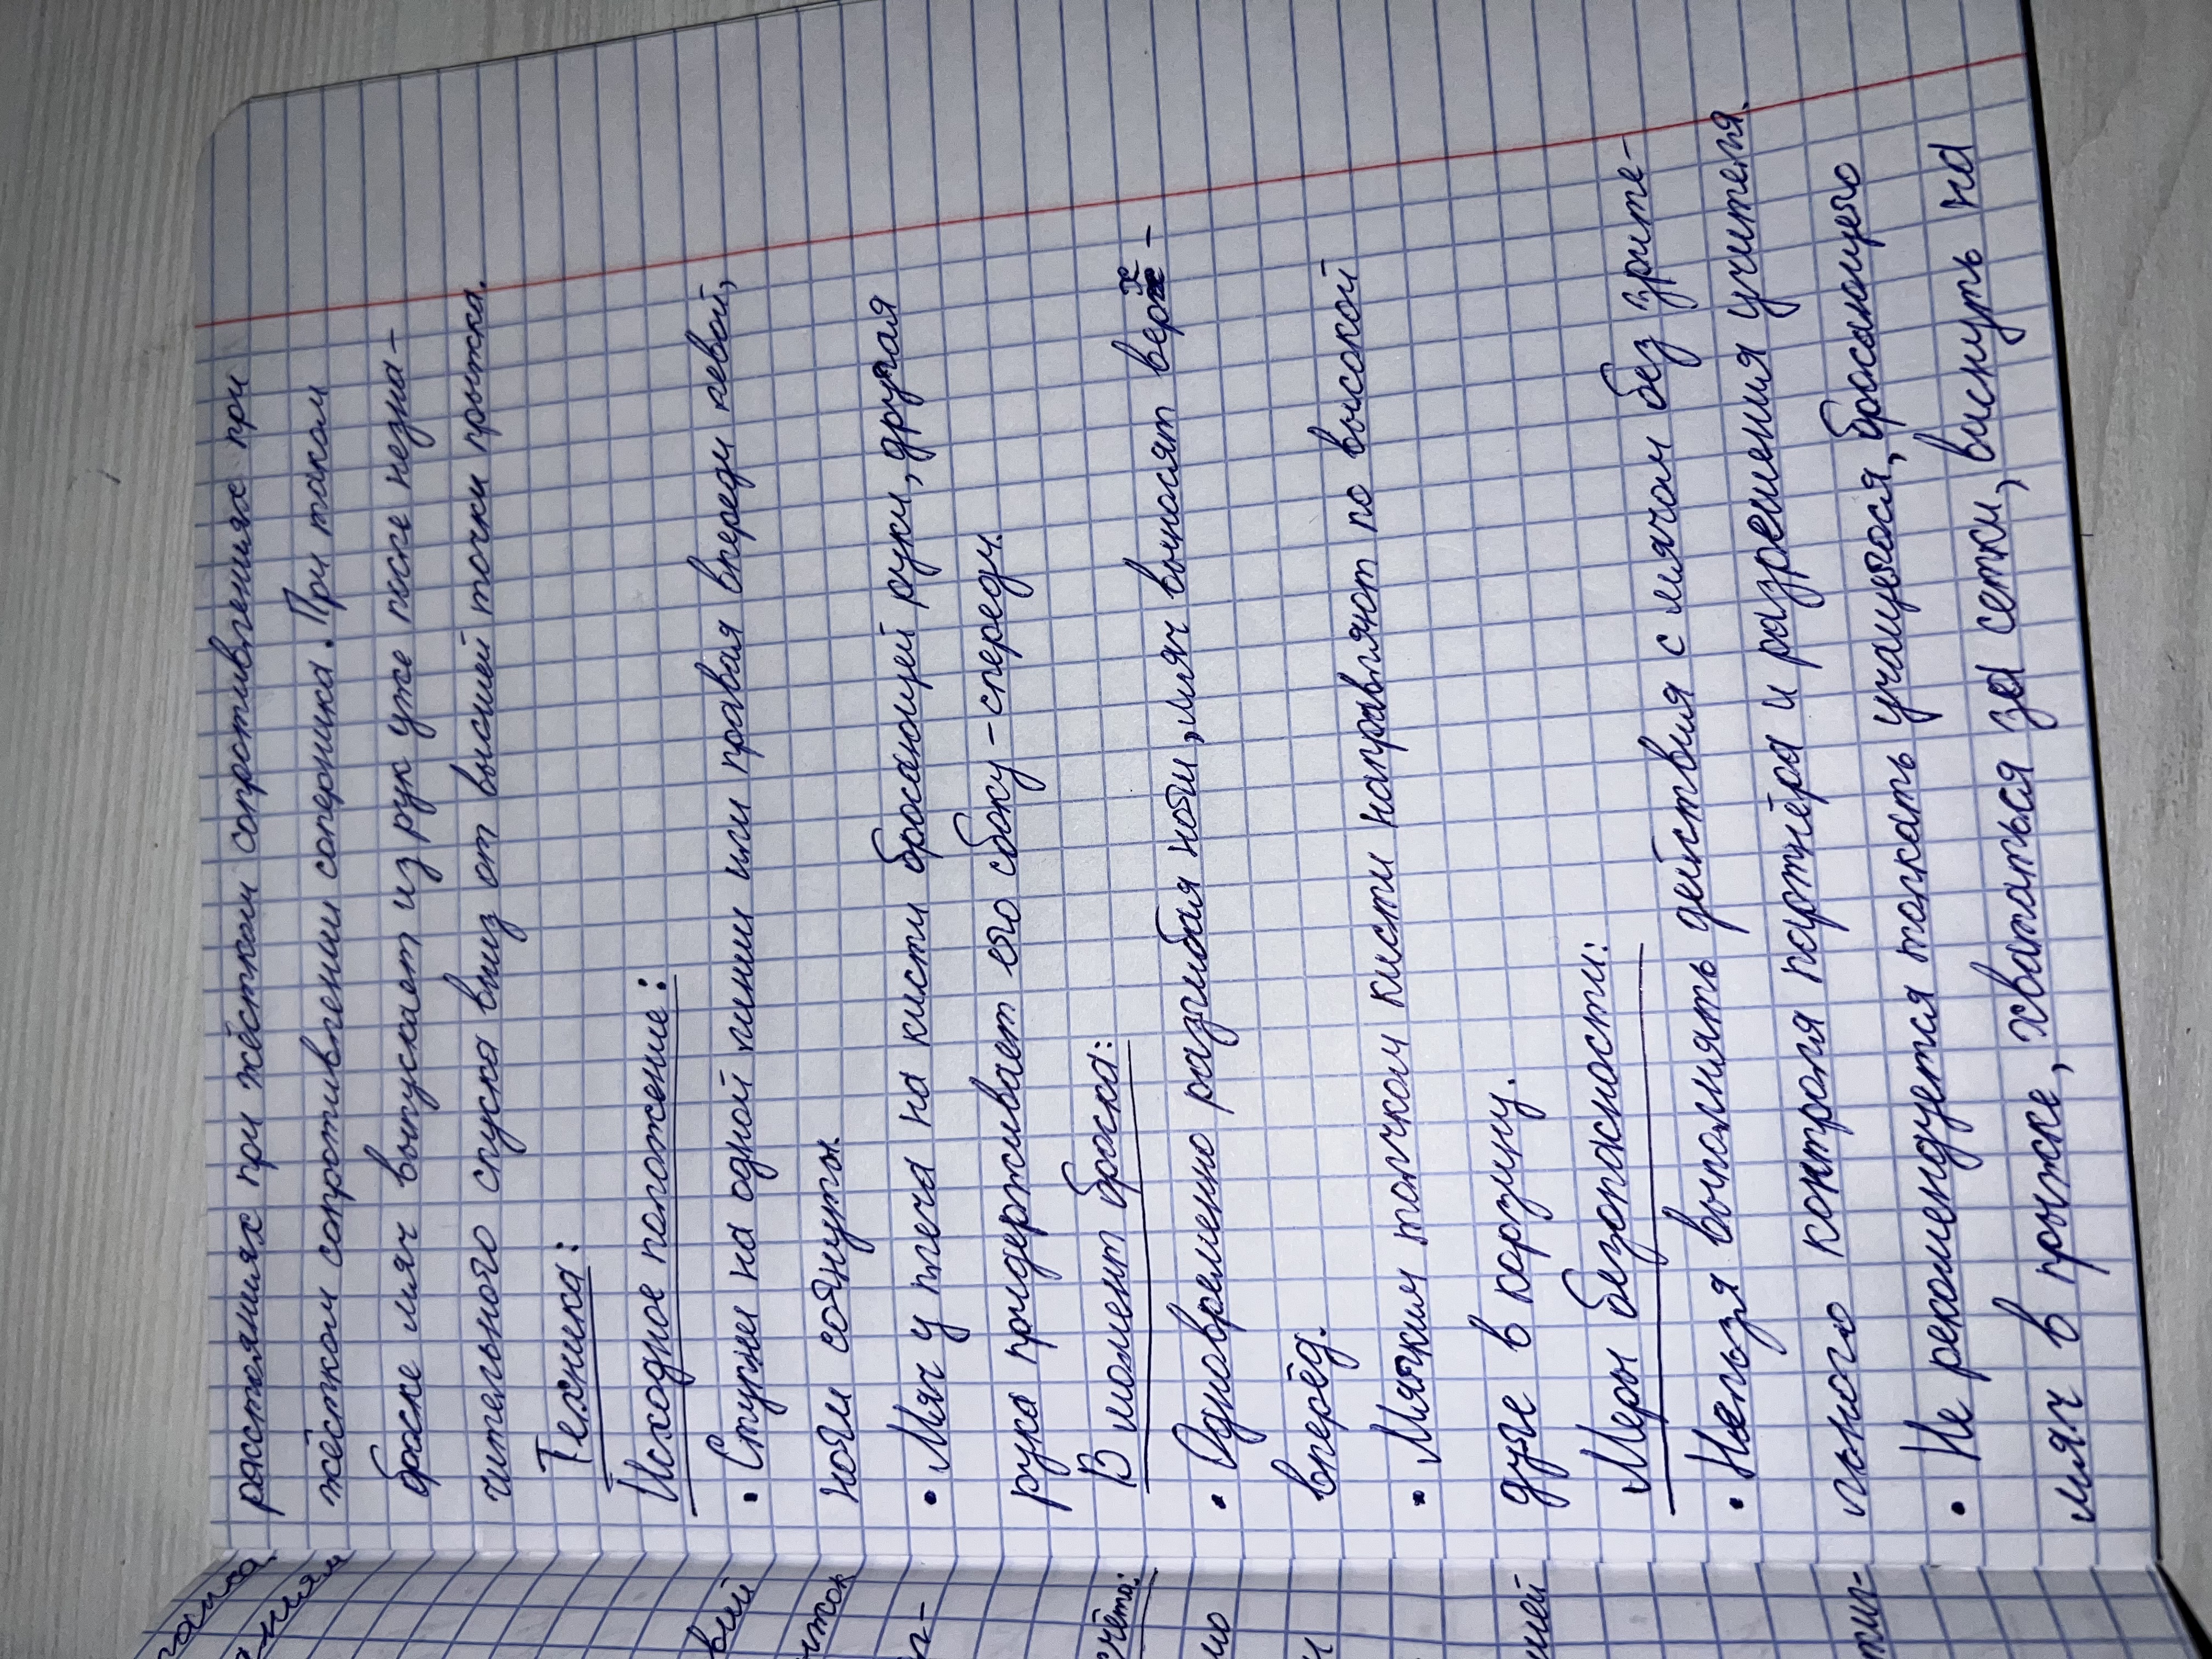 расстояниях при жёстком сопротивлениях при
жёстком сопротивлении соперника. При таком
броске мяч выпускает из рук уже после незна-
чительного спуска вниз от высшей точки прыжка.
Техника:
Исходное положение:
• Ступни на одной линии или правая впереди левой,
ноги согнуты.
• Мяч у плеча на кисти бросающей руки, другая
рука придерживает его сбоку-спереди.
В момент броска:
• Одновременно разгибая ноги, мяч выносят верх-
вперёд.
• Мягким толчком кисти направляют по высокой
дуге в корзину.
Меры безопасности:
• Нельзя выполнять действия с мячом без зрите-
льного контроля партнёра и разрешения учителя.
• Не рекомендуется толкать учащегося, бросающего
мяч в прыжке, хвататься за сетки, виснуть на
ниям
вый
счёта:
но